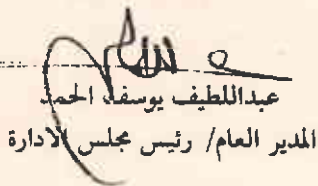 عبداللطيف يوسف الحمد
المدير العام/ رئيس مجلس الادارة